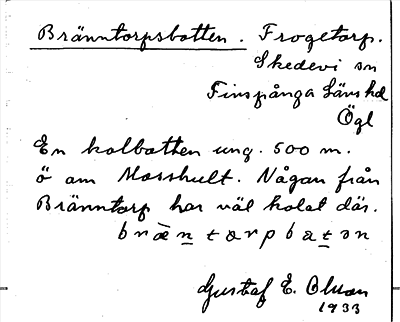 Bränntorpsbotten. Frogetorp.
Skedevi sn
Finspånga Läns hd
Ögl
En kolbotten ung. 500 m.
ö om Mosshult. Någon från
Bränntorp har väl kolat där.
bræ̀ntɔrpbɔtən
Gustaf E. Olson
1933